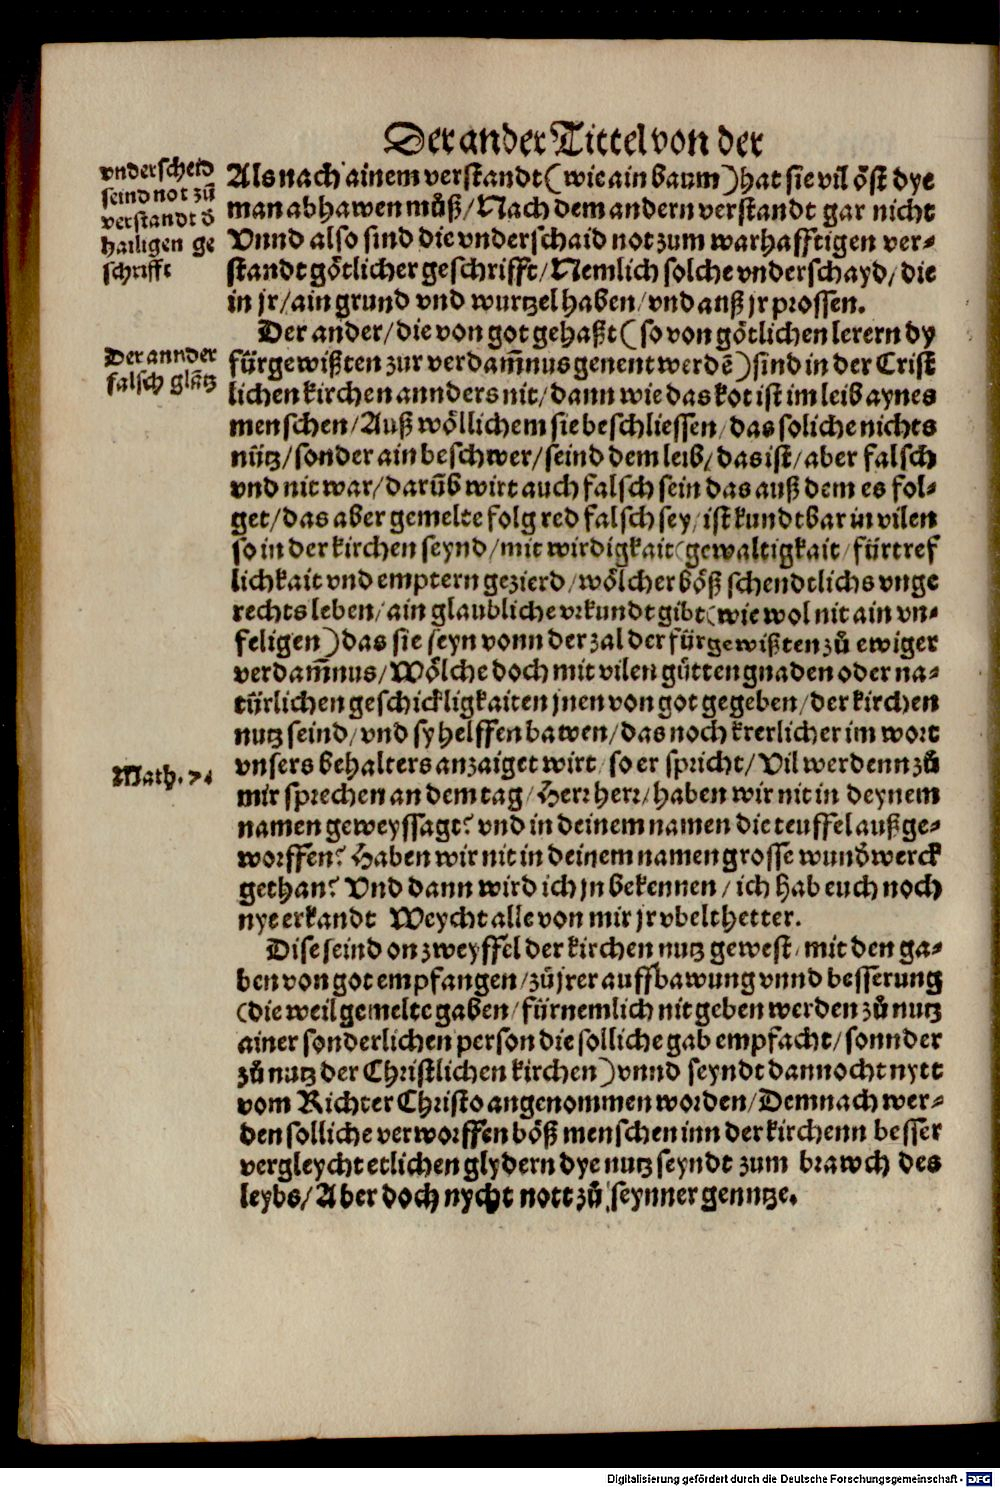 Der ander Tittel von der
vnderscheid
seind not zů
verstandt d̄
hailigen ge
schrifft
Als nach ainem verstandt (wie ain baum) hat sie vil öst dye
man abhawen můß / Nach dem andern verstandt gar nicht
Vnnd also sind die vnderschaid not zum warhafftigen ver⸗
standt götlicher geschrifft / Nemlich solche vnderschayd / die
in jr / ain grund vnd wurtzel haben / vnd auß jr prossen.
Der annder
falsch glātz
Der ander / die von got gehaßt (so von götlichen lerern dy
fürgewißten zur verdam̄nus genent werdē) sind in der Crist
lichen kirchen annders nit / dann wie das kot ist im leib aynes
menschen / Auß wöllichem sie beschliessen / das soliche nichts
nütz / sonder ain beschwer / seind dem leib / das ist / aber falsch
vnd nit war / darūb wirt auch falsch sein das auß dem es fol⸗
get / das aber gemelte folg red falsch sey / ist kundtbar in vilen
so in der kirchen seynd / mit wirdigkait (gewaltigkait / fürtref
lichkait vnd emptern gezierd / wölcher böß schendtlichs vnge
rechts leben / ain glaubliche vrkundt gibt (wie wol nit ain vn⸗
feligen) das sie seyn vonn der zal der fürgewißten zů ewiger
verdam̄nus / Wölche doch mit vilen gütten gnaden oder na⸗
türlichen geschickligkaiten jnen von got gegeben / der kirchen
nutz seind / vnd sy helffen bawen / das noch krerlicher im wort
Math. 7.
vnsers behalters anzaiget wirt / so er spricht / Vil werdenn zů
mir sprechen an dem tag / Herr herr / haben wir nit in deynem
namen geweyssagt? vnd in deinem namen die teuffel auß ge⸗
worffen? Haben wir nit in deinem namen grosse wund̄werck
gethan? Vnd dann wird ich jn bekennen / ich hab euch noch
nye erkandt Weycht alle von mir jr vbelthetter.
Dise seind on zweyffel der kirchen nutz gewest / mit den ga⸗
ben von got empfangen / zů jrer auffbawung vnnd besserung
(die weil gemelte gaben / fürnemlich nit geben werden zů nutz
ainer sonderlichen person die solliche gab empfacht / sonnder
zů nutz der Christlichen kirchen) vnnd seyndt dannocht nytt
vom Richter Christo angenommen worden / Demnach wer⸗
den solliche verworffen böß menschen inn der kirchenn besser
vergleycht etlichen glydern dye nutz seyndt zum brawch des
leybs / Aber doch nycht nott zů seynner genntze.
Digitalisierung gefördert durch die Deutsche Forschungsgemeinschaft - DFG